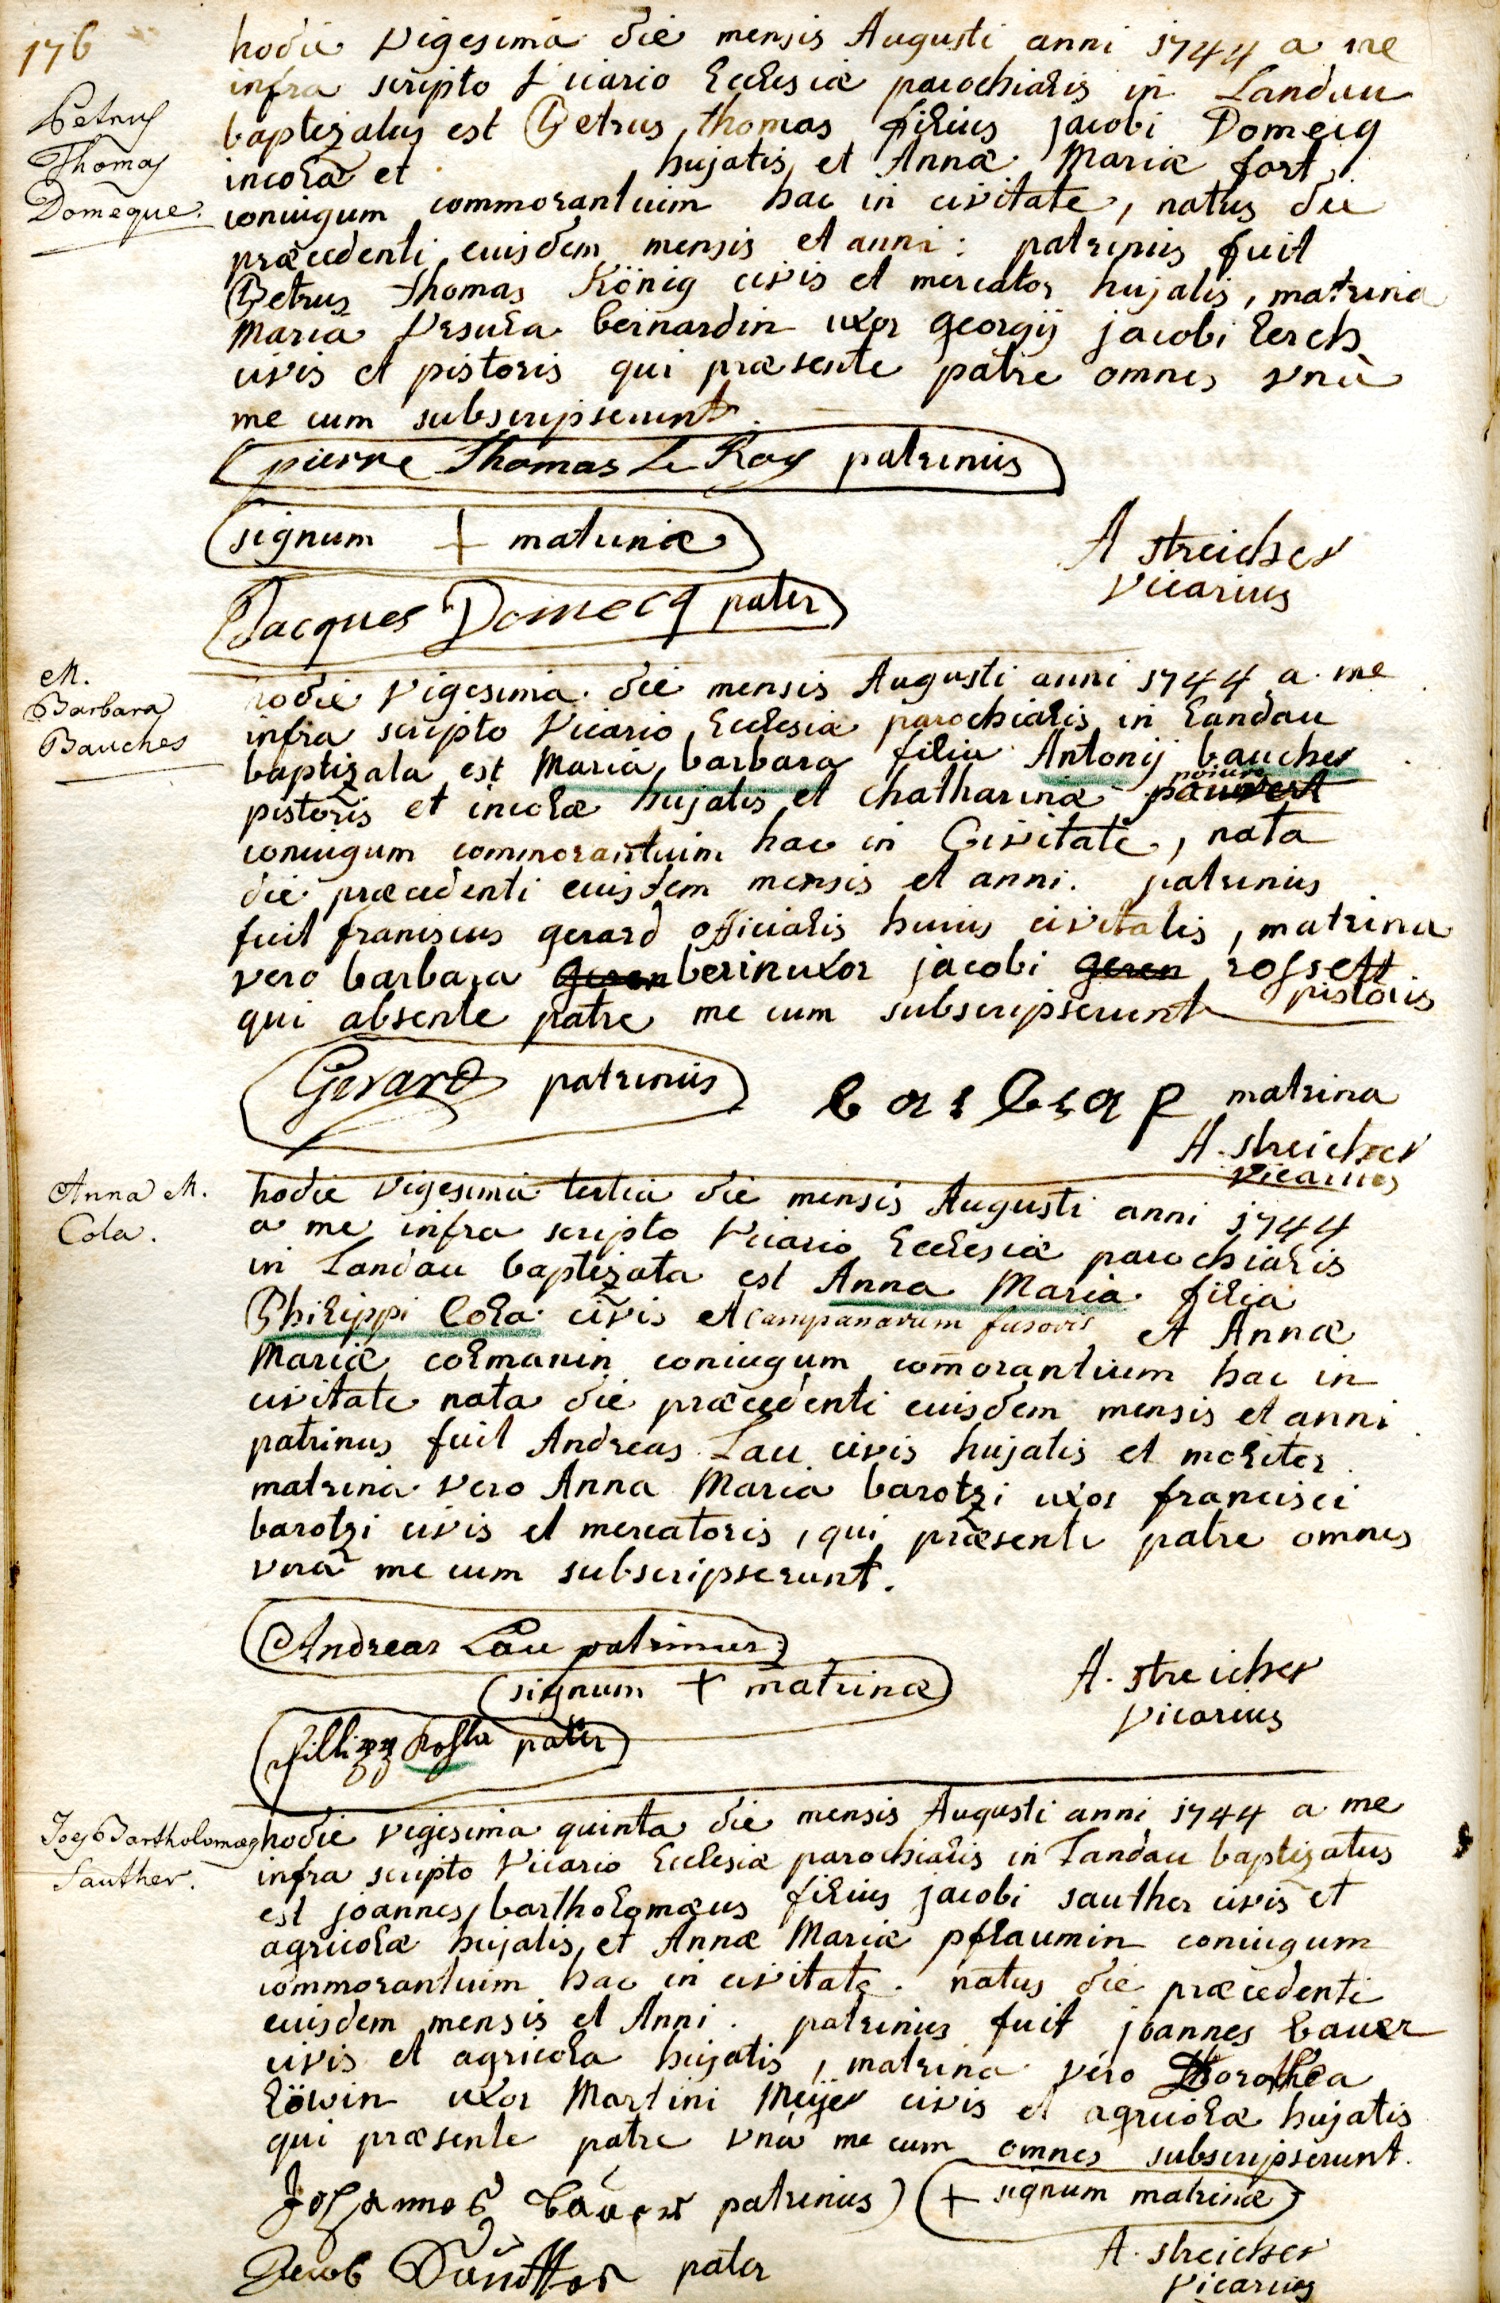 176
Petrus
Thomas
Domeque.
hodie vigesima die mensis Augusti anni 1744 a me
infra scripto Vicario Ecclesiæ parochialis in Landau
baptizatus est Petrus, thomas filius jacobi Domecq
incolæ et hujatis, et Annæ Mariæ fort
coniugum commorantium hac in civitate, natus die
præcedenti euisdem mensis et anni: patrinus fuit
Petrus Thomas König civis et mercator hujatis, matrina
Maria Vrsula bernardin uxor georgij jacobi Lerch
civis et pistoris qui præsente patre omnes vnà
me cum subscripserunt.
pierre Thomas Le Roy patrinus
signum + matrinæ
A streicher
Vicarius
Jacques Domecq pater
M.
Barbara
Bauches
hodie vigesima die mensis Augusti anni 1744 a me
infra scripto Vicario Ecclesiæ parochialis in Landau
baptizata est Maria, barbara filia Antonij baucher
pistoris et incolæ hujatis et chatharinæ
coniugum commorantium hac in Civitate, nata
die præcedenti euisdem mensis et anni. patrinus
fuit franciscus gerard officialis huius civitatis, matrina
vero barbara geren berin uxor jacobi geren rossett
pistoris
qui absente patre me cum subscripserunt
Gerard patrinus
matrina
A. streicher
Vicarius
Anna M.
Cola.
hodie vigesima tertia die mensis Augusti anni 1744
a me infra scripto Vicario Ecclesiæ parochialis
in Landau baptizata est Anna Maria filia
Philippi Cola civis et campanarum fusoris et Annæ
Mariæ colmanin coniugum comorantium hac in
civitate nata die præcedenti euisdem mensis et anni
patrinus fuit Andreas Lau civis hujatis et moliter
matrina vero Anna Maria barotzi uxor francisci
barotzi civis et mercatoris, qui præsente patre omnes
vna me cum subscripserunt.
Andreas Lau patrinus
signum + matrinæ
A. streicher
Vicarius
pater
Joes Bartholomæus
Sauther.
hodie vigesima quinta die mensis Augusti anni 1744 a me
infra scripto Vicario Ecclesiæ parochialis in Landau baptizatus
est joannes, bartholomæus filius jacobi sauther civis et
agricolæ hujatis, et Annæ Mariæ pflaumin coniugum
commorantium hac in civitate. natus die præcedenti
euisdem mensis et Anni. patrinus fuit joannes bauer
civis et agricola hujatis, matrina vero Dorothea
Löwin uxor Martini Meijer civis et agricolæ hujatis
qui præsente patre vnà me cum omnes subscripserunt.
Johannes bauer patrinus
+ signum matrinæ
Jacob Sautter pater
A. streicher
Vicarius